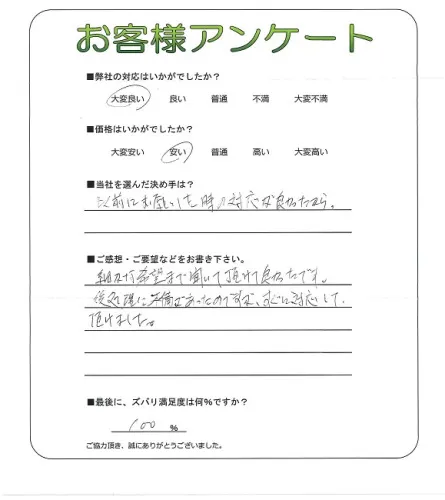 お客様アンケート
■弊社の対応はいかがでしたか?
大変良い 良い 普通 不満 大変不満
■価格はいかがでしたか?
大変安い 安い 普通 高い 大変高い
■当社を選んだ決め手は?
以前にお願いした時の対応が良かったから。
■ご感想・ご要望などをお書き下さい。
細かな希望まで聞いて頂けて良かったです。
後処理に不備があったのですが、すぐに対応して
頂けました。
■最後に、ズバリ満足度は何%ですか?
100 %
ご協力頂き、誠にありがとうございました。